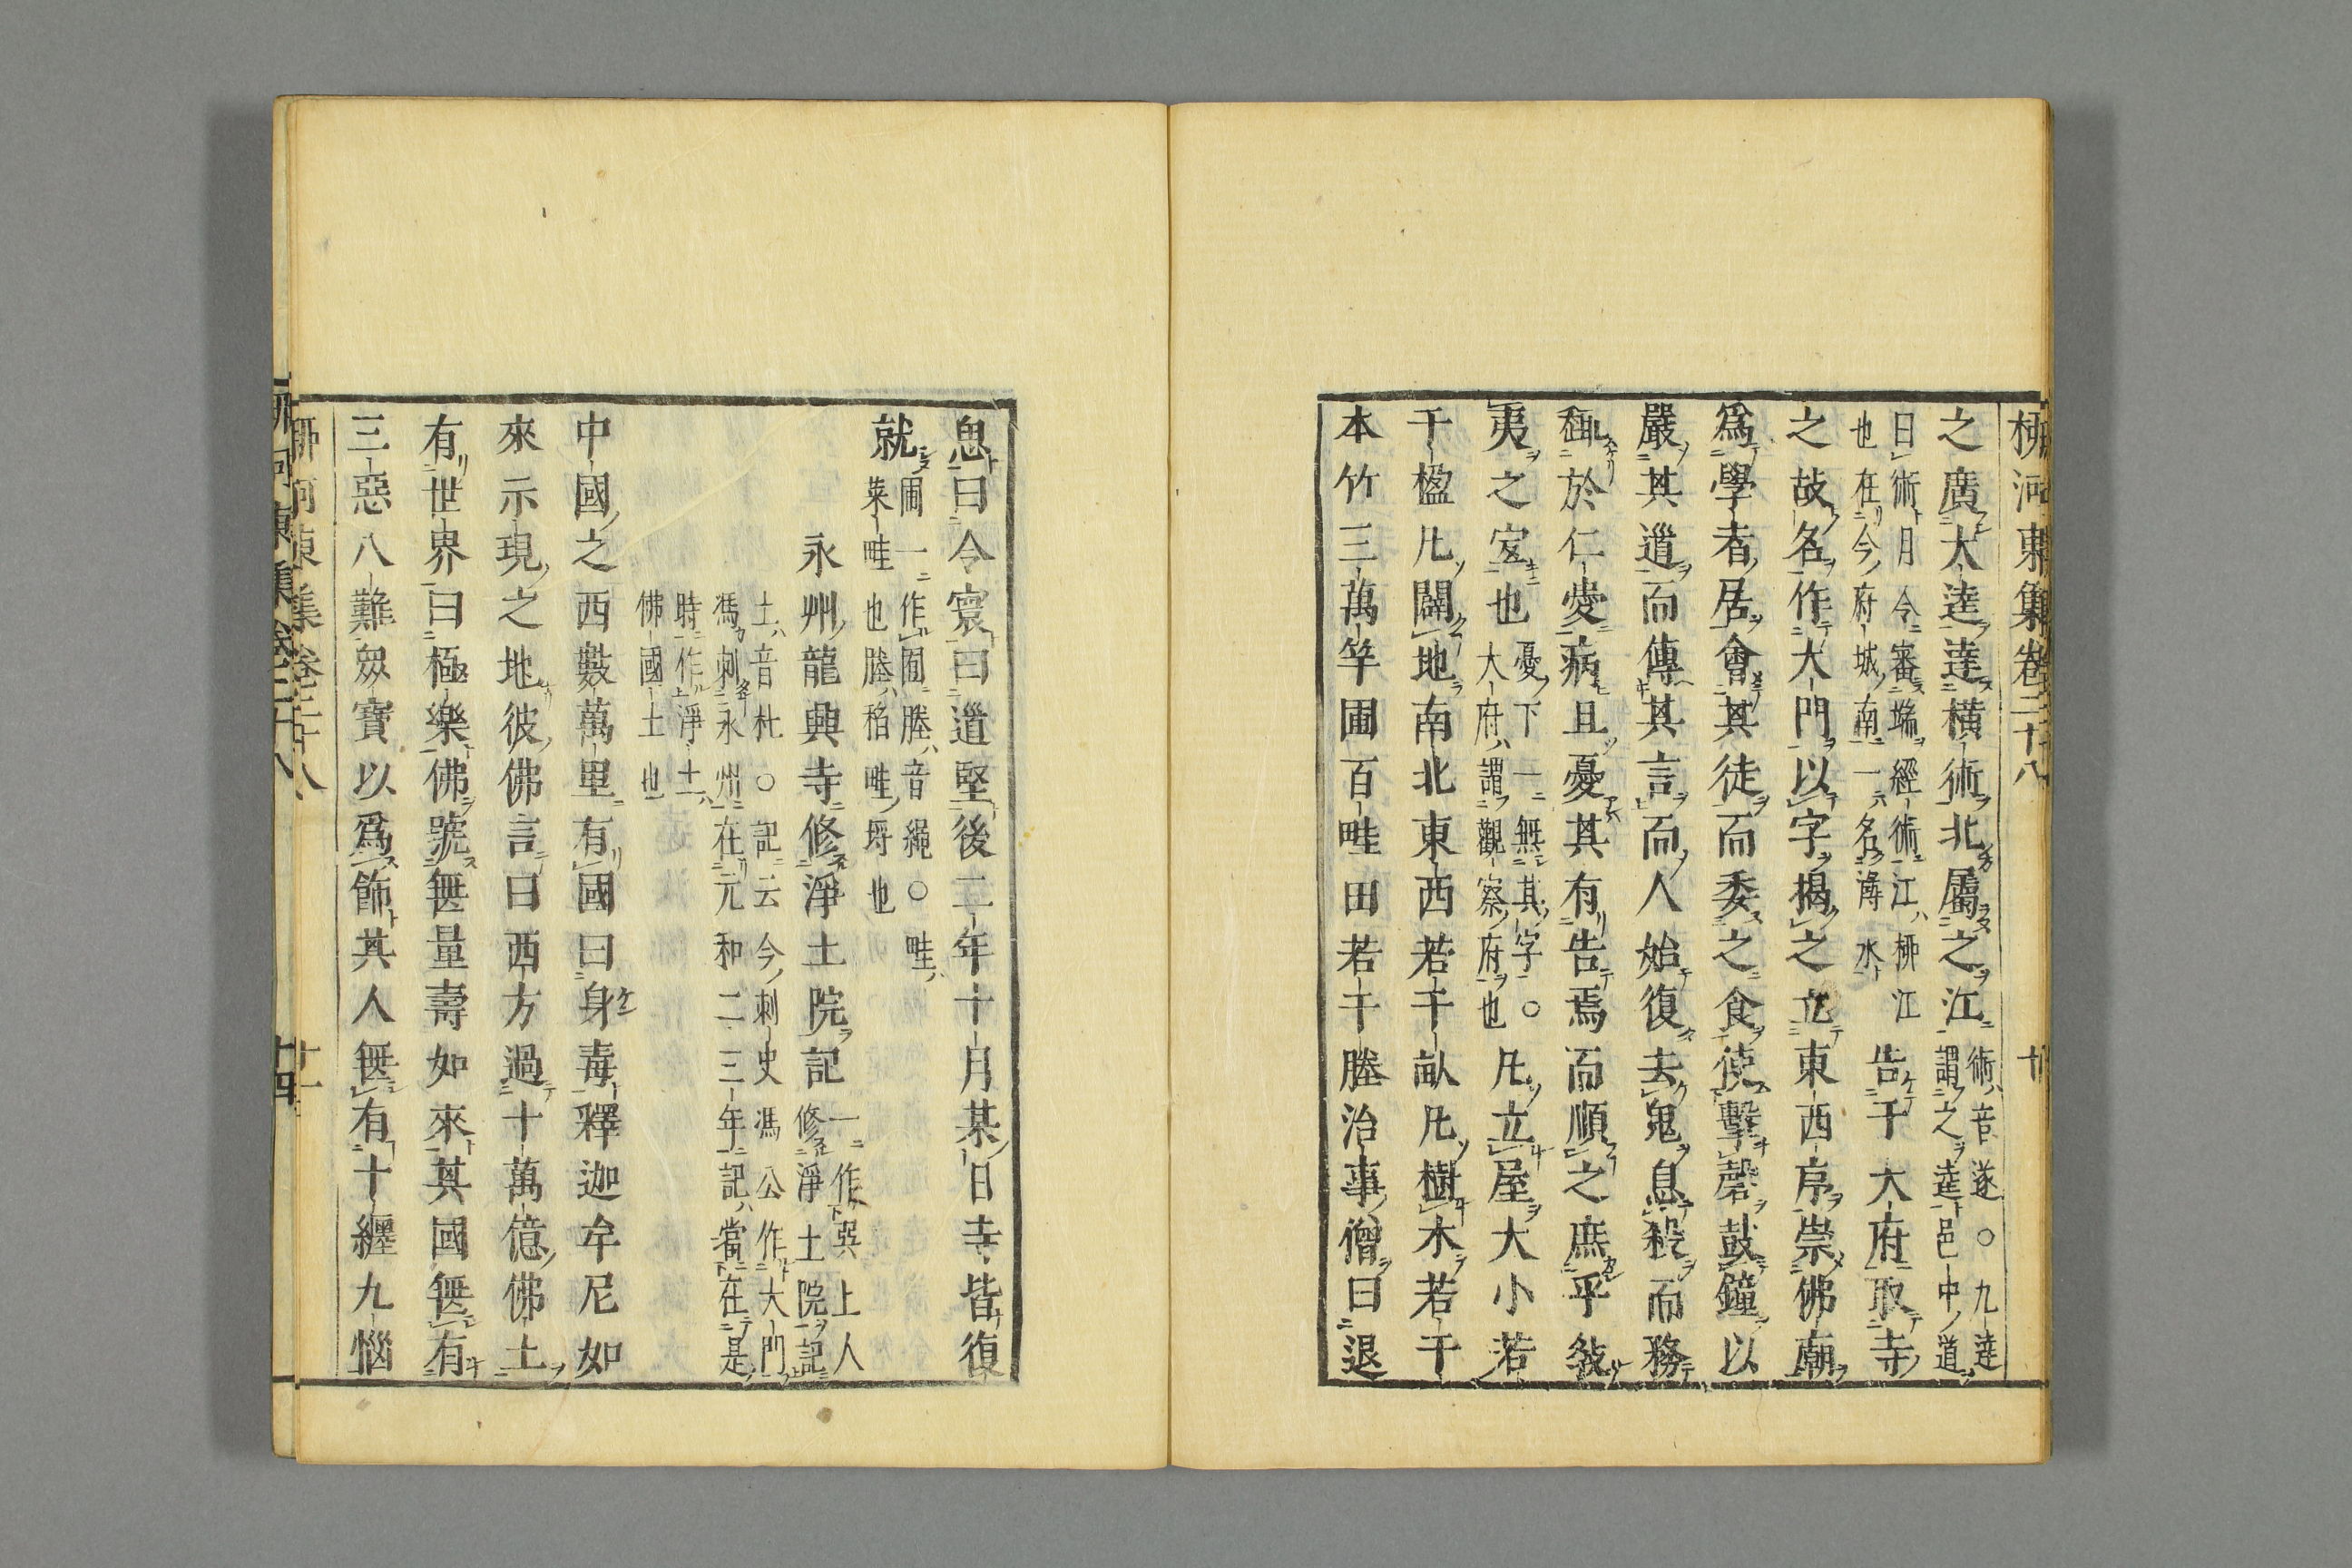 柳河東集卷二十八　十
之廣大逵逵橫術北屬之江術音遂○九逵謂之逵邑中道
曰術月令審端經術江柳江也在今府城南一名潯水告于大府取寺
之故名作大門以字揭之立東西序崇佛廟
爲學者居會其徒而委之食使擊磬鼓鐘以
嚴其道而傳其言而人始復去鬼息殺而務
趣於仁愛病且憂其有告焉而順之庶乎敎
夷之宐也憂下一無其字○大府謂觀察府也凡立屋大小若
干楹凡闢地南北東西若干畝凡樹木若干
本竹三萬竿圃百畦田若干塍治事僧曰退
息曰令寰曰道堅後二年十月某日寺皆復
就圃一作囿塍音繩○畦菜畦也塍稻畦埒也
永州龍興寺修淨土院記一作巽上人修淨土院記
土音杜○記云今刺史馮公作大門馮刺永州在元和二三年記當在是
時作淨土佛國土也
中國之西數萬里有國曰身毒釋迦牟尼如
來示現之地彼佛言曰西方過十萬億佛土
有世界曰極樂佛號無量壽如來其國無有
三惡八難衆寶以爲飾其人無有十纏九惱
柳河東集卷二十八　十一
柳河東集卷二十八　十四